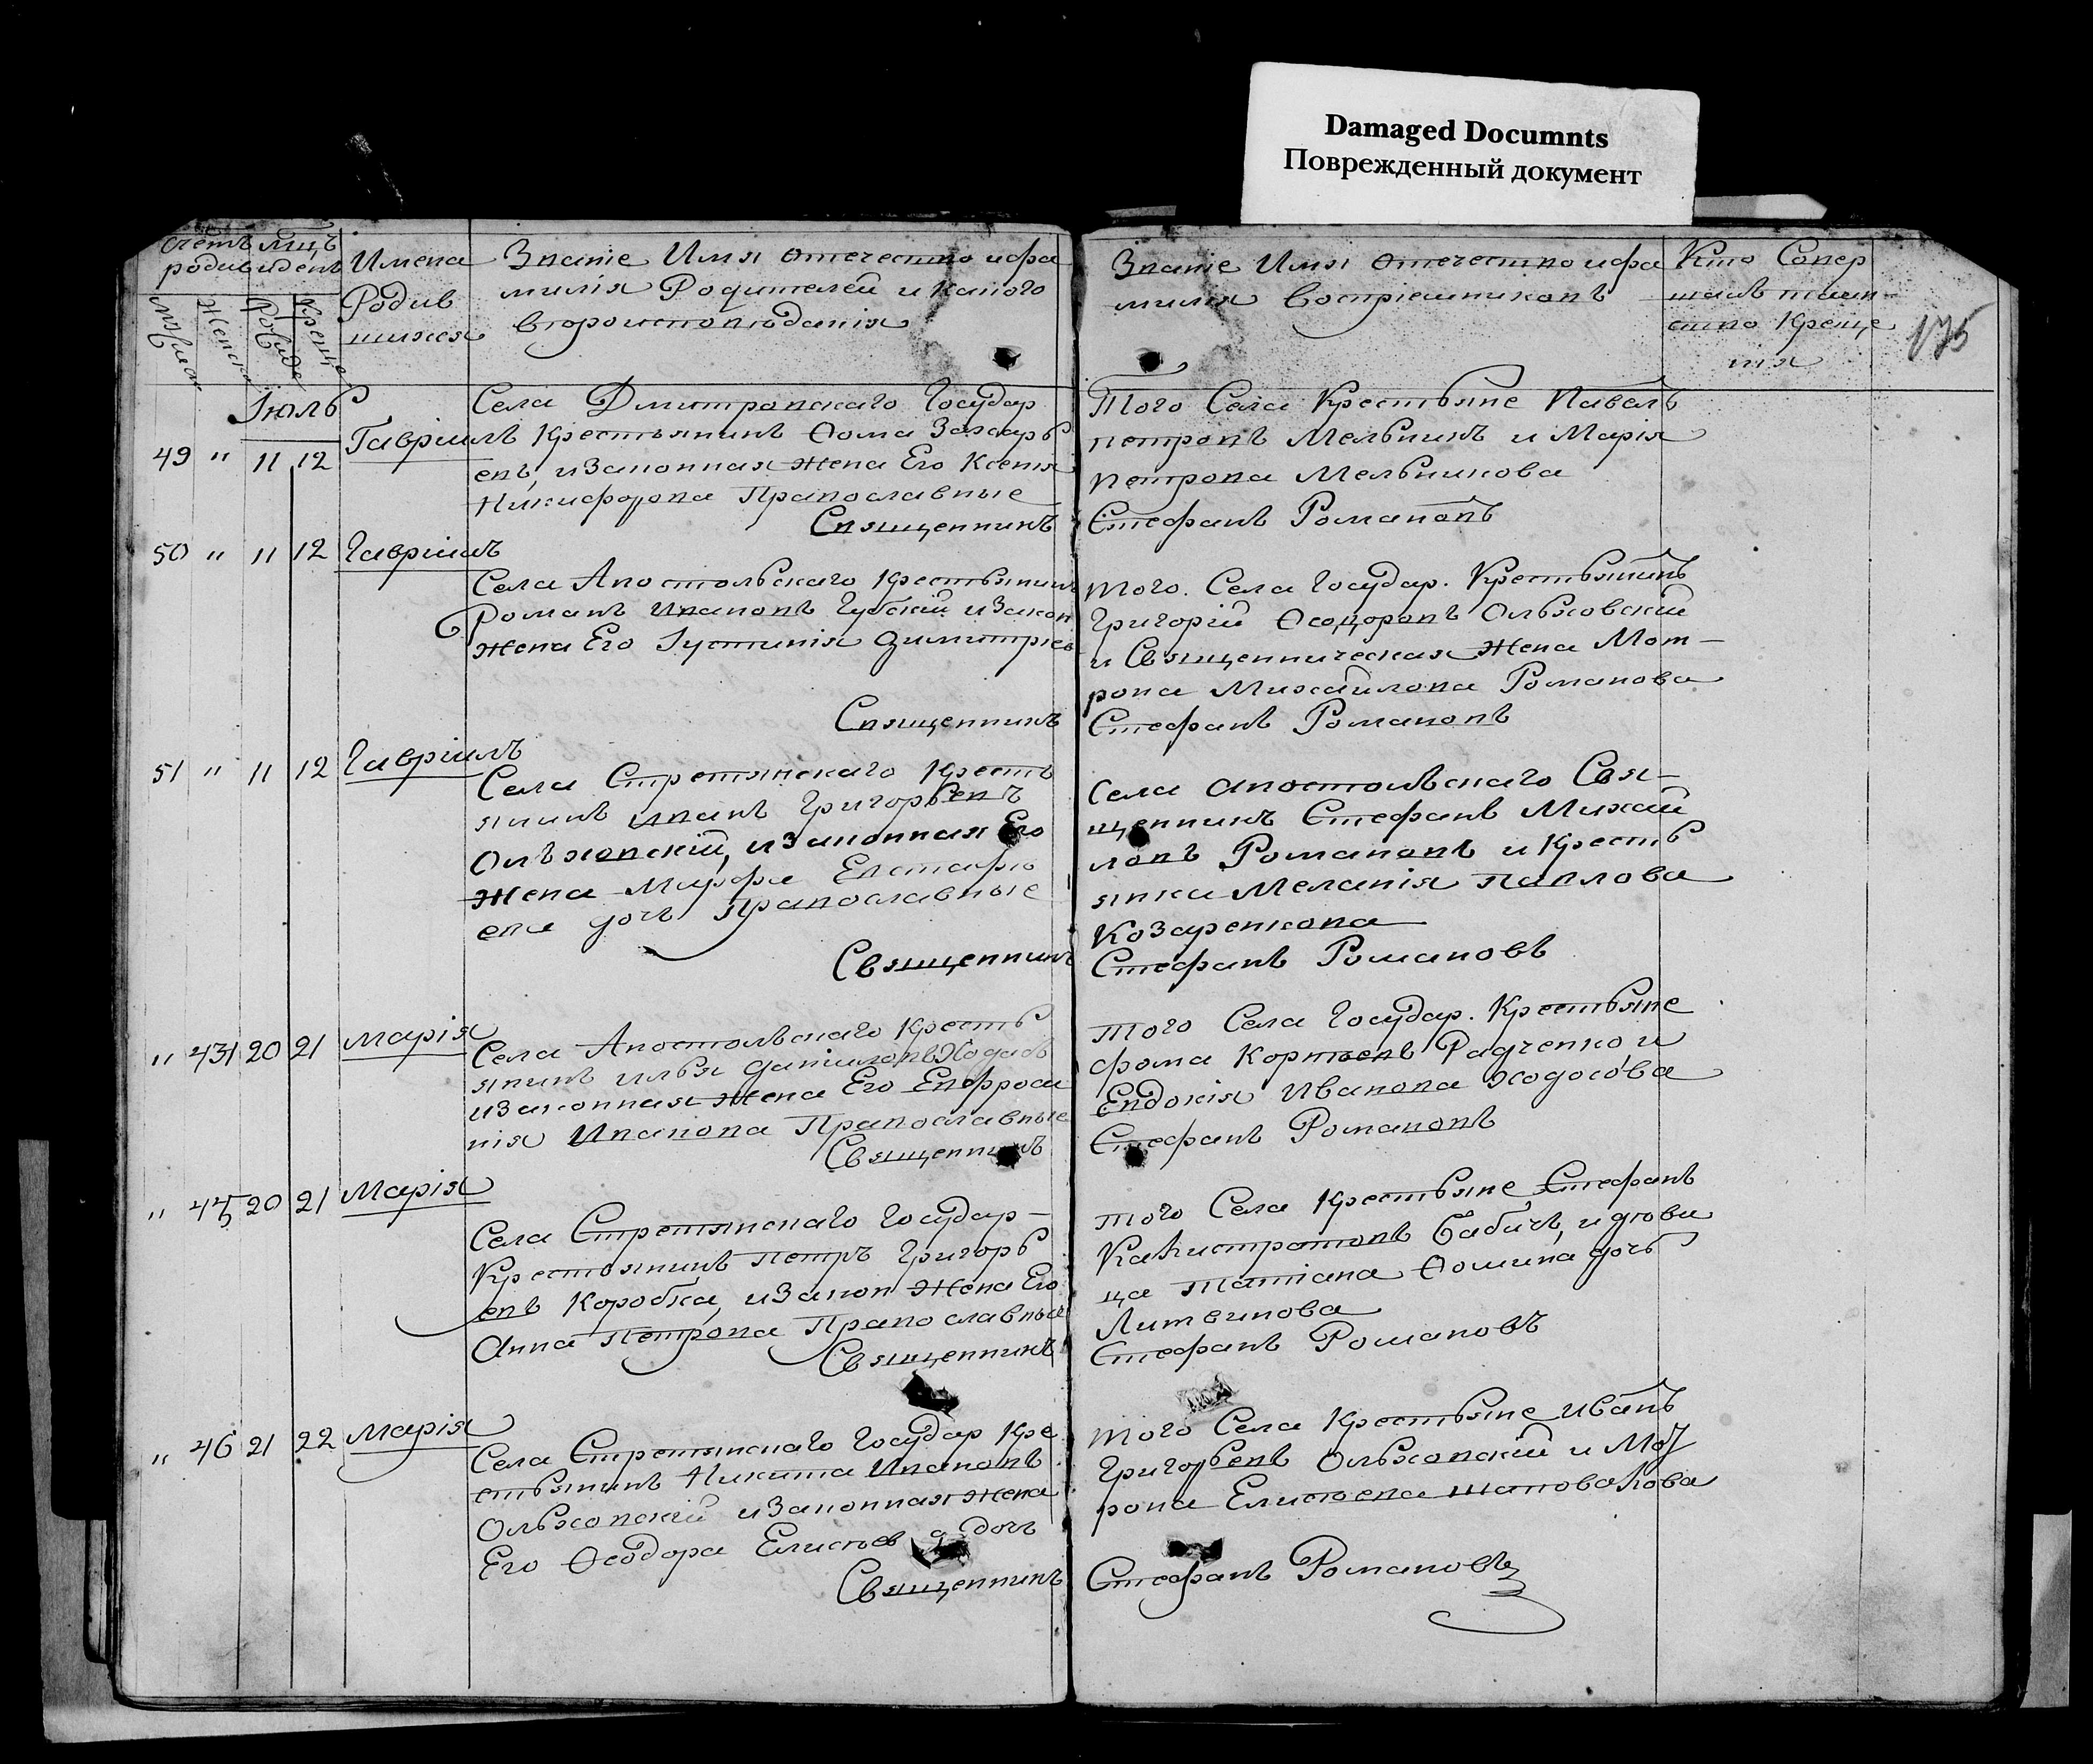 Damaged Documnts
Поврежденный документ
Счетъ
родив
мцъ
и день
Имена
Родив
шихся
Званіе Имя отечество и фа
милія Родителей и какого
вѣроисповѣданія
Званіе Имя отечество и фа
милія воспріемниковъ
Кто Совер
шалъ таин
ство Креще
нія
175
Іюль
49 " 11 12
Гавріилъ
Села Дмитровскаго Государ
Крестьянинъ Ѳома Захарь
евъ, и законная жена Его Ксенія
Никифорова Православные
Священникъ
Того Села Крестьяне Павелъ
Петровъ Мельникъ и Марія
Петрова Мельникова
Стефанъ Романовъ
50 " 11 12
Гавріилъ
Села Апостольскаго Крестьянинъ
Романъ Ивановъ Губскій и закон
жена Его Іустинія Димитріев
Священникъ
того Села Государ. Крестьянинъ
Григорій Ѳеодоровъ Ольховскій
и Священническая жена Мат-
рона Михайлова Романова
Стефанъ Романовъ
51 " 11 12
Гавріилъ
Села Стретинскаго Кресть
янинъ Иванъ Григорьевъ
Ольховскій, и законная Его
жена Марфа Евстафі
ева дочь Православные
Священникъ
Села Апостольскаго Свя-
щенникъ Стефанъ Михай
ловъ Романовъ и Кресть
янка Меланія Павлова
Козаренкова
Стефанъ Романовъ
" 20 21
Марія
Села Апостольскаго Кресть
янинъ Илья Даниловъ
и законная жена Его Евфроси
нія Иванова Православные
Священникъ
того Села Государ. Крестьяне
Фома Корнѣевъ Радченко, и
Евдокія Иванова Ходосова
Стефанъ Романовъ
" 45 20 21
Марія
Села Стретинскаго Государ-
Крестьянинъ Петръ Григорь
евъ Коробка, и закон жена Его
Анна Петрова Православные
Священникъ
того Села Крестьяне Стефанъ
Калистратовъ Бабичъ, и дѣви
ца Татіана Ѳомина дочь
Литвинова
Стефанъ Романовъ
" 46 21 22
Марія
Села Стретинскаго Государ Кре
стьянинъ Никита Ивановъ
Ольховскій и законная жена
Его Ѳеодора Елисѣев дочь
Священникъ
того Села Крестьяне Иванъ
Григорьевъ Ольховскій и Мат
рона Елисѣева Шаповалова
Стефанъ Романовъ